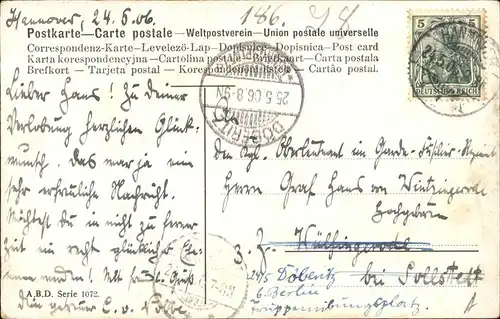 Hannover, 24.5.06.
186.
Postkarte—Carte postale—Weltpostverein—Union postale universelle
Correspondenz-Karte—Levelező-Lap—Dopisnice—Dopisnica—Post card
Karta korespondencyjna—Cartolina postale—Briefkaart—Carta postala
Brefkort — Tarjeta postal — Korespondenčni listek — Cartão postal.
5 5
DEUTSCHES REICH
HANNOVER
DÖBERITZ
25.5.06.8-9N
Lieber Hans! Zu Deiner
Verlobung herzlichen Glück-
wunsch. Das war ja eine
sehr erfreuliche Nachricht.
Wirst du in nicht zu ferner
Zeit ein recht glücklicher Ehe-
Mit Gruß
Dein getreuer
A.B.D. Serie 1072.
den Kgl. Oberleutnant im Garde-Füsilier-Regiment
Herrn Graf Hans von Wintzingerode
Hochgeboren
z. Z.
bei Sollstedt
Döberitz
b. Berlin
Truppenübungsplatz.